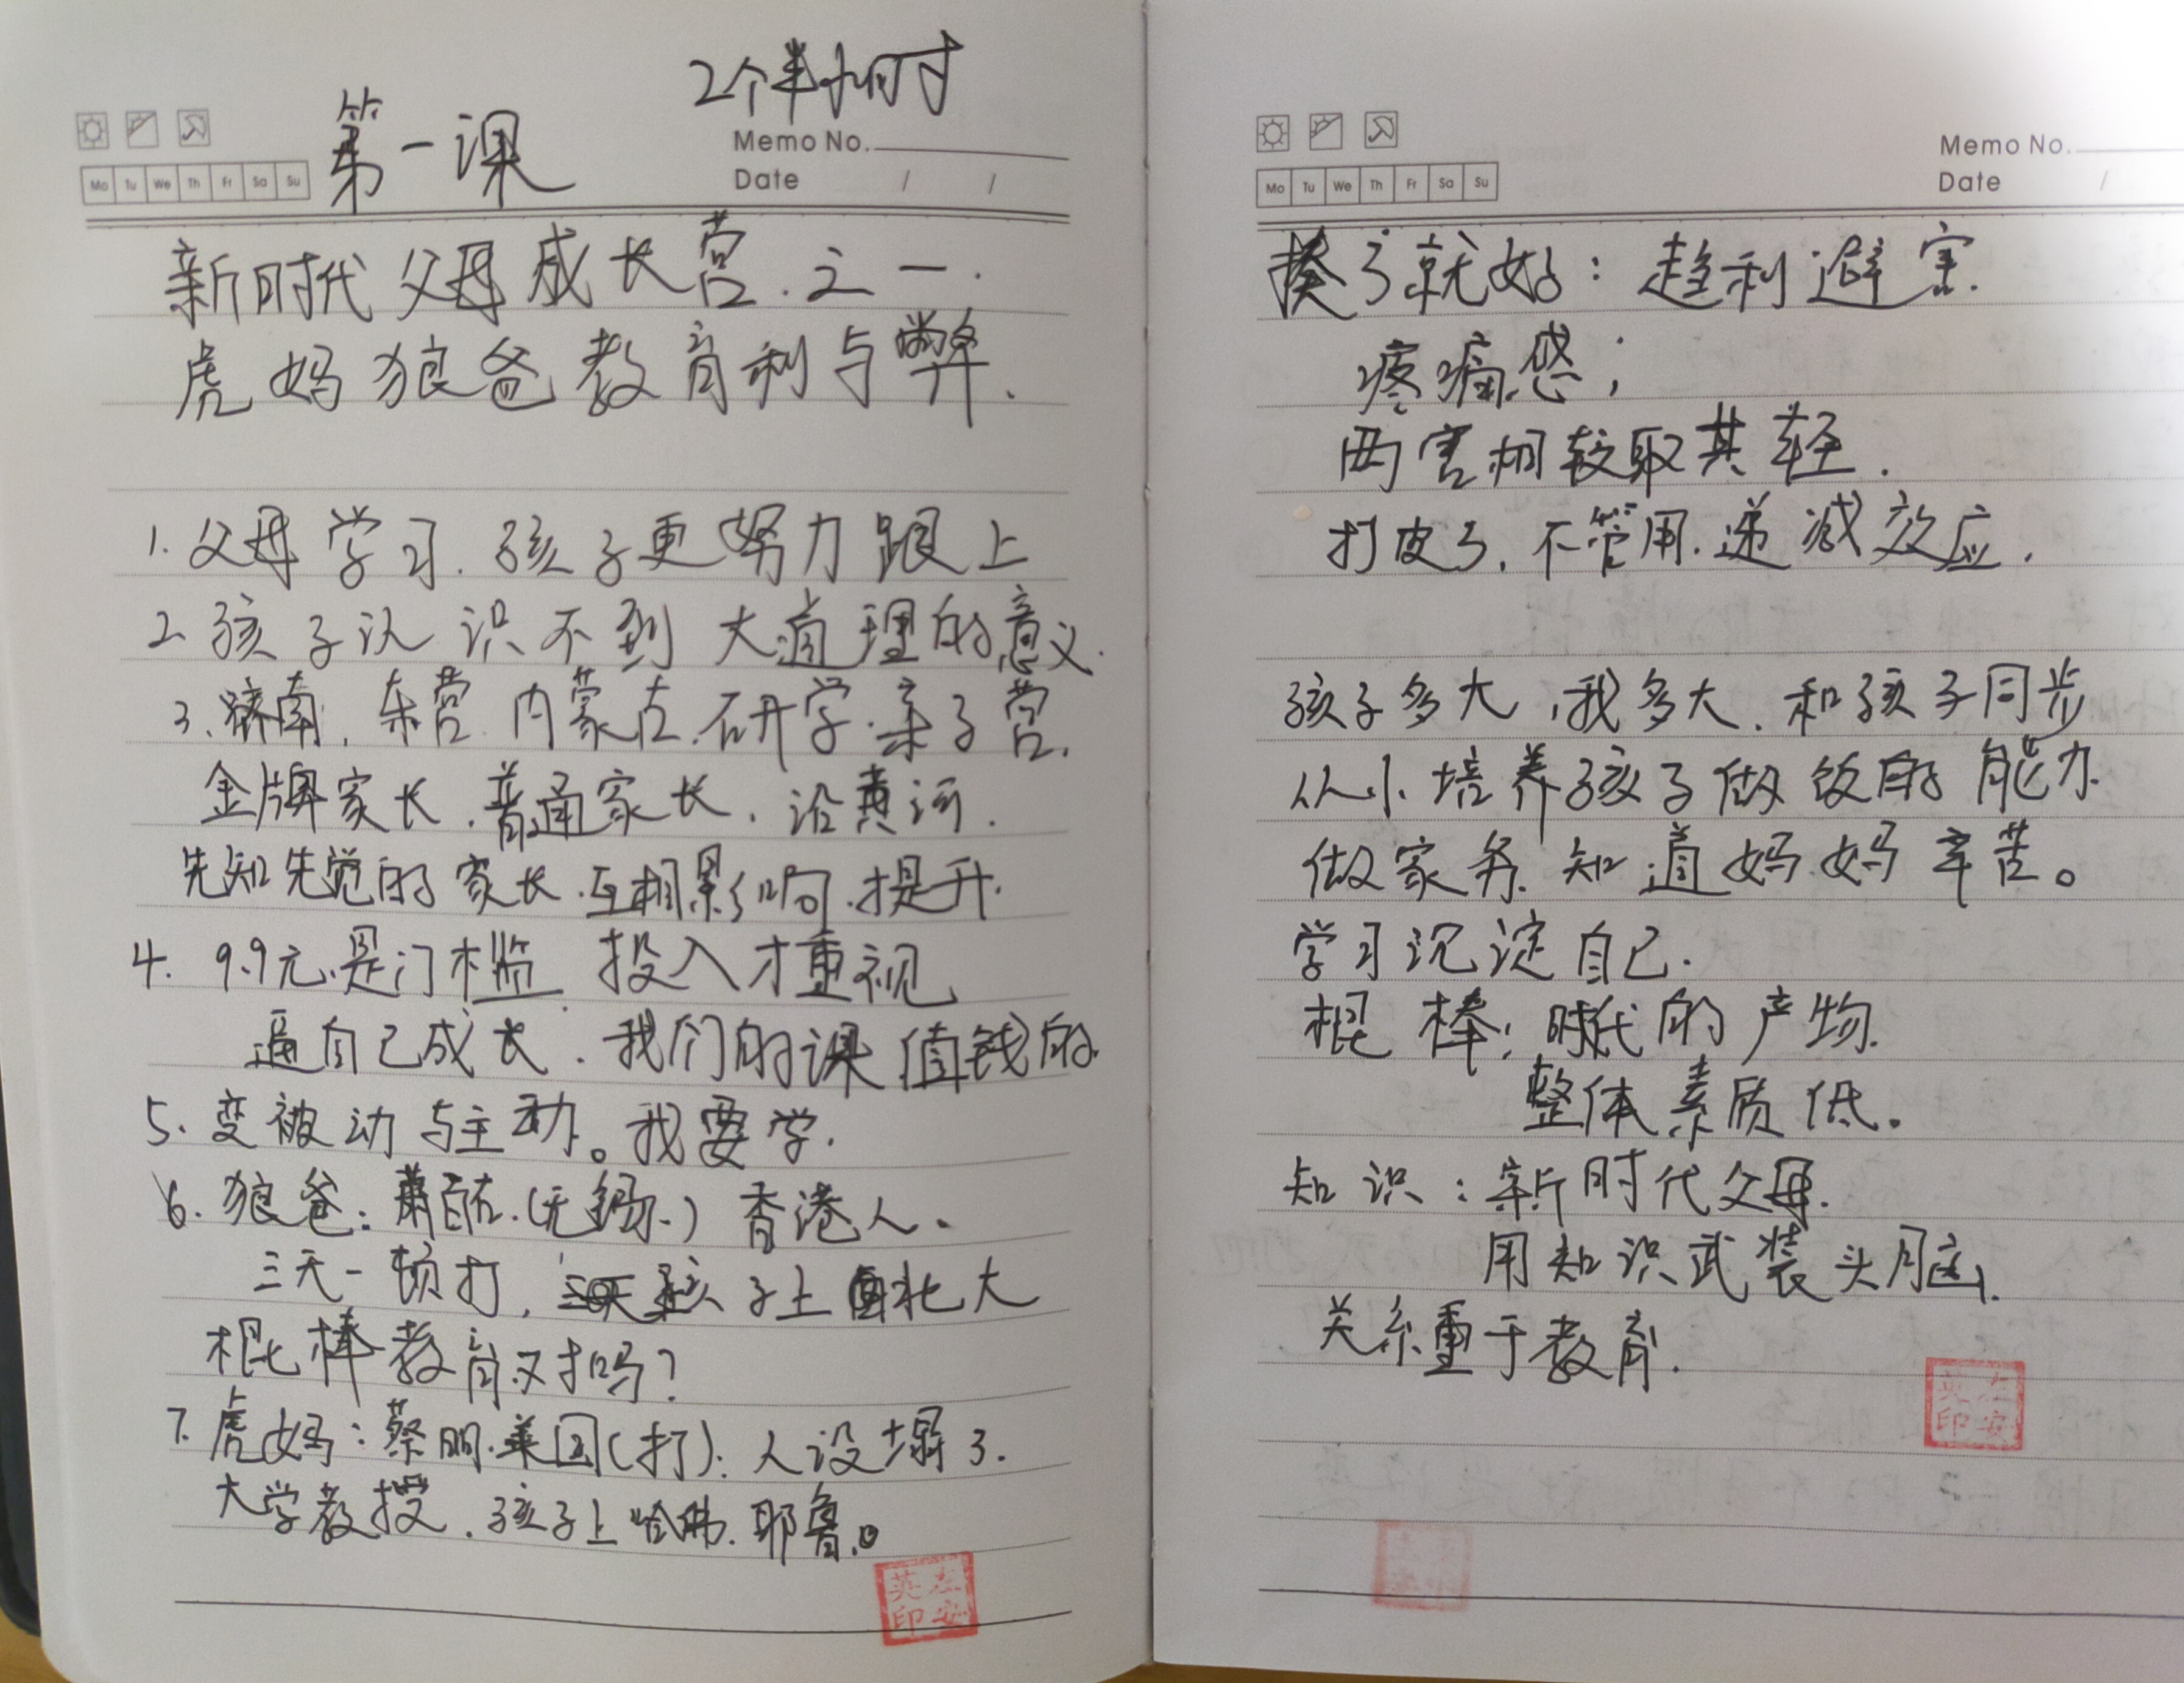 2个半小时
第一课
Memo No.
Mo Tu We Th Fr Sa Su
Date / /
新时代父母成长营.之一.
虎妈狼爸教育利与弊.
1.父母学习.孩子更努力跟上
2.孩子认识不到大道理的意义.
3.济南,东营.内蒙古.研学.亲子营.
金牌家长.普通家长.沿黄河.
先知先觉的家长.互相影响.提升.
4. 9.9元.是门槛.投入才重视
逼自己成长.我们的课值钱的.
5.变被动与主动。我要学.
6.狼爸:萧百佑.(无锡.)香港人.
三天一顿打,孩子上北大
棍棒教育对吗?
7.虎妈:蔡明.美国(打):人设塌了.
大学教授.孩子上哈佛.耶鲁.。
英左
印安
Memo No.
Mo Tu We Th Fr Sa Su
Date /
揍了就好:趋利避害.
疼痛感;
两害相较取其轻.
打皮了.不管用.递减效应.
孩子多大,我多大.和孩子同步
从小培养孩子做饭的能力.
做家务.知道妈妈辛苦。
学习沉淀自己.
棍棒:时代的产物.
整体素质低。
知识:新时代父母.
用知识武装头脑.
关系重于教育.
英左
印安